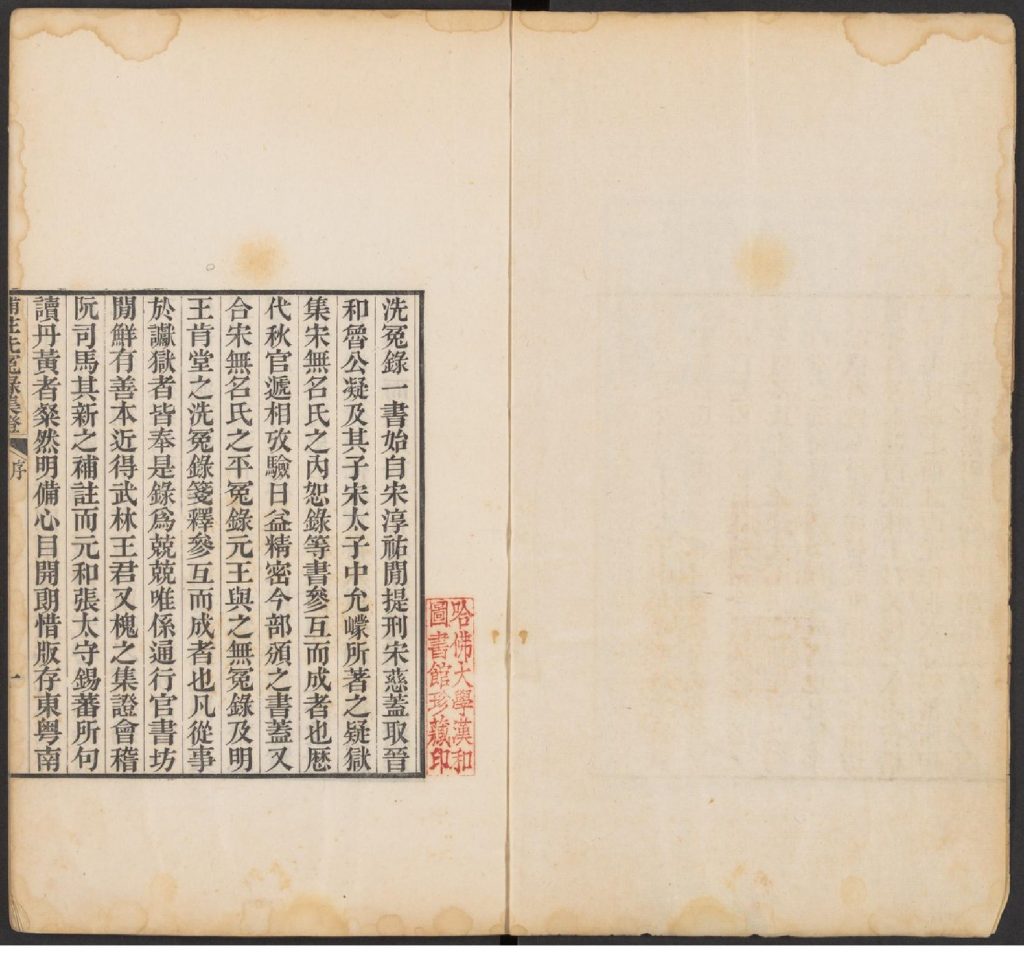 洗冤錄一書始自宋淳祐閒提刑宋慈蓋取晉
和魯公凝及其子宋太子中允㠓所著之疑獄
集宋無名氏之內恕錄等書參互而成者也厯
代秋官遞相攷驗日益精密今部頒之書蓋又
合宋無名氏之平冤錄元王與之無冤錄及明
王肯堂之洗冤錄箋釋參互而成者也凡從事
於讞獄者皆奉是錄爲兢兢唯係通行官書坊
閒鮮有善本近得武林王君又槐之集證會稽
阮司馬其新之補註而元和張太守錫蕃所句
讀丹黃者粲然明備心目開朗惜版存東粤南
補註洗冤錄集證
序
一
哈佛大學漢和
圖書館珍藏印